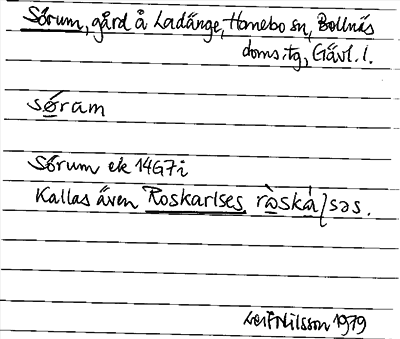 Sörum, gård å Ladänge, Hanebo sn, Bollnäs
doms:tg, Gävl. l.
sø̀ram
Sörum ek 14G7i
Kallas även Roskarlses ròskáɭsəs.
Leif Nilsson 1979